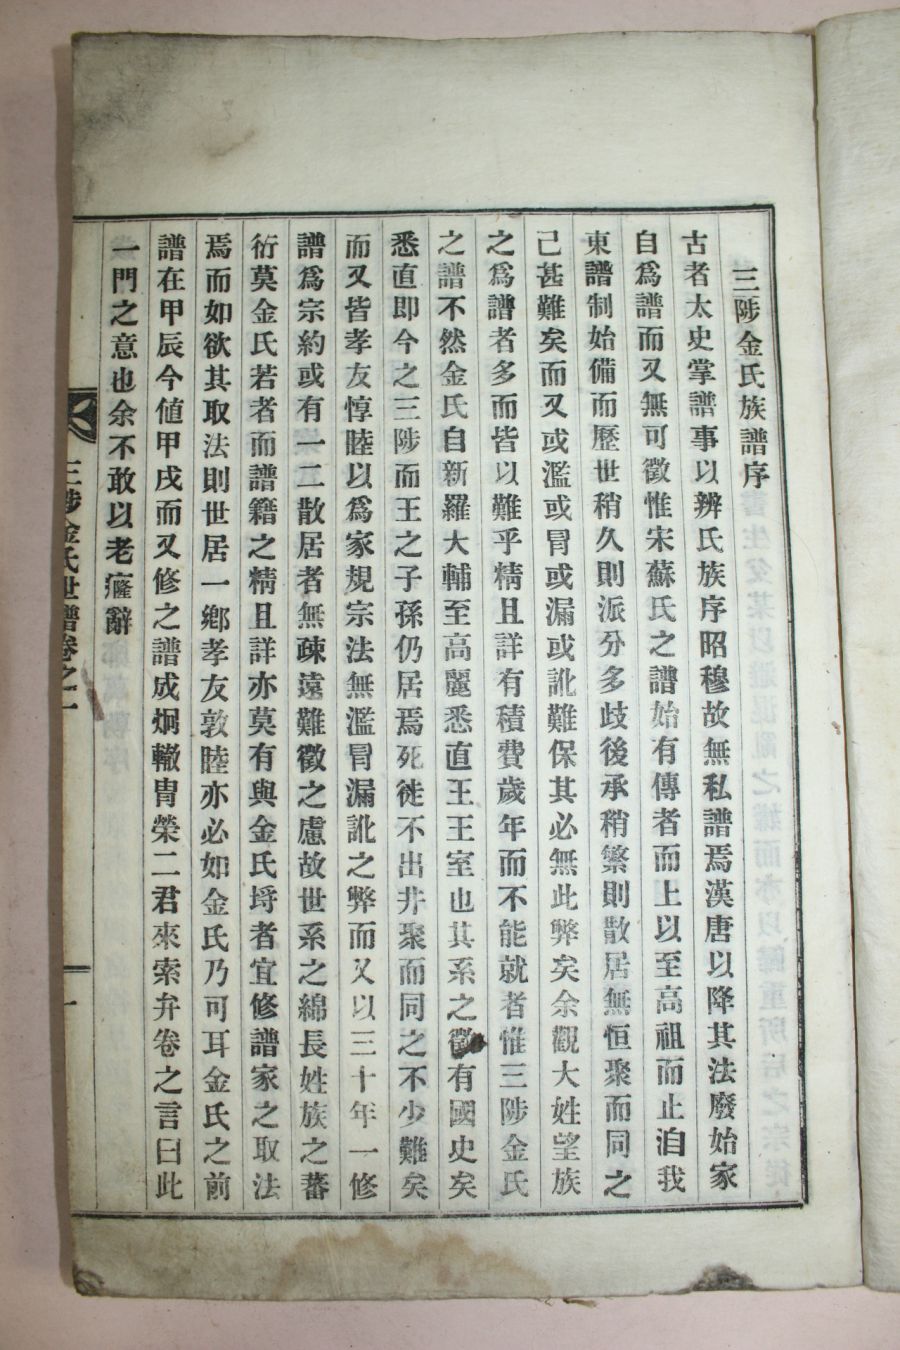 三陟金氏族譜序
古者太史掌譜事以辨氏族序昭穆故無私譜焉漢唐以降其法廢始家
自爲譜而又無可徵惟宋蘇氏之譜始有傳者而上以至高祖而止洎我
東譜制始備而歷世稍久則派分多歧後承稍繁則散居無恒聚而同之
已甚難矣而又或濫或冒或漏或訛難保其必無此弊矣余觀大姓望族
之爲譜者多而皆以難乎精且詳有積費歲年而不能就者惟三陟金氏
之譜不然金氏自新羅大輔至高麗悉直王王室也其系之徵有國史矣
悉直即今之三陟而王之子孫仍居焉死徙不出井聚而同之不少難矣
而又皆孝友惇睦以爲家規宗法無濫冒漏訛之弊而又以三十年一修
譜爲宗約或有一二散居者無疎遠難徵之慮故世系之綿長姓族之蕃
衍莫金氏若者而譜籍之精且詳亦莫有與金氏埒者宜修譜家之取法
焉而如欲其取法則世居一鄉孝友敦睦亦必如金氏乃可耳金氏之前
譜在甲辰今値甲戌而又修之譜成炯轍胄榮二君來索弁卷之言曰此
一門之意也余不敢以老癃辭
三陟金氏世譜卷之一
一